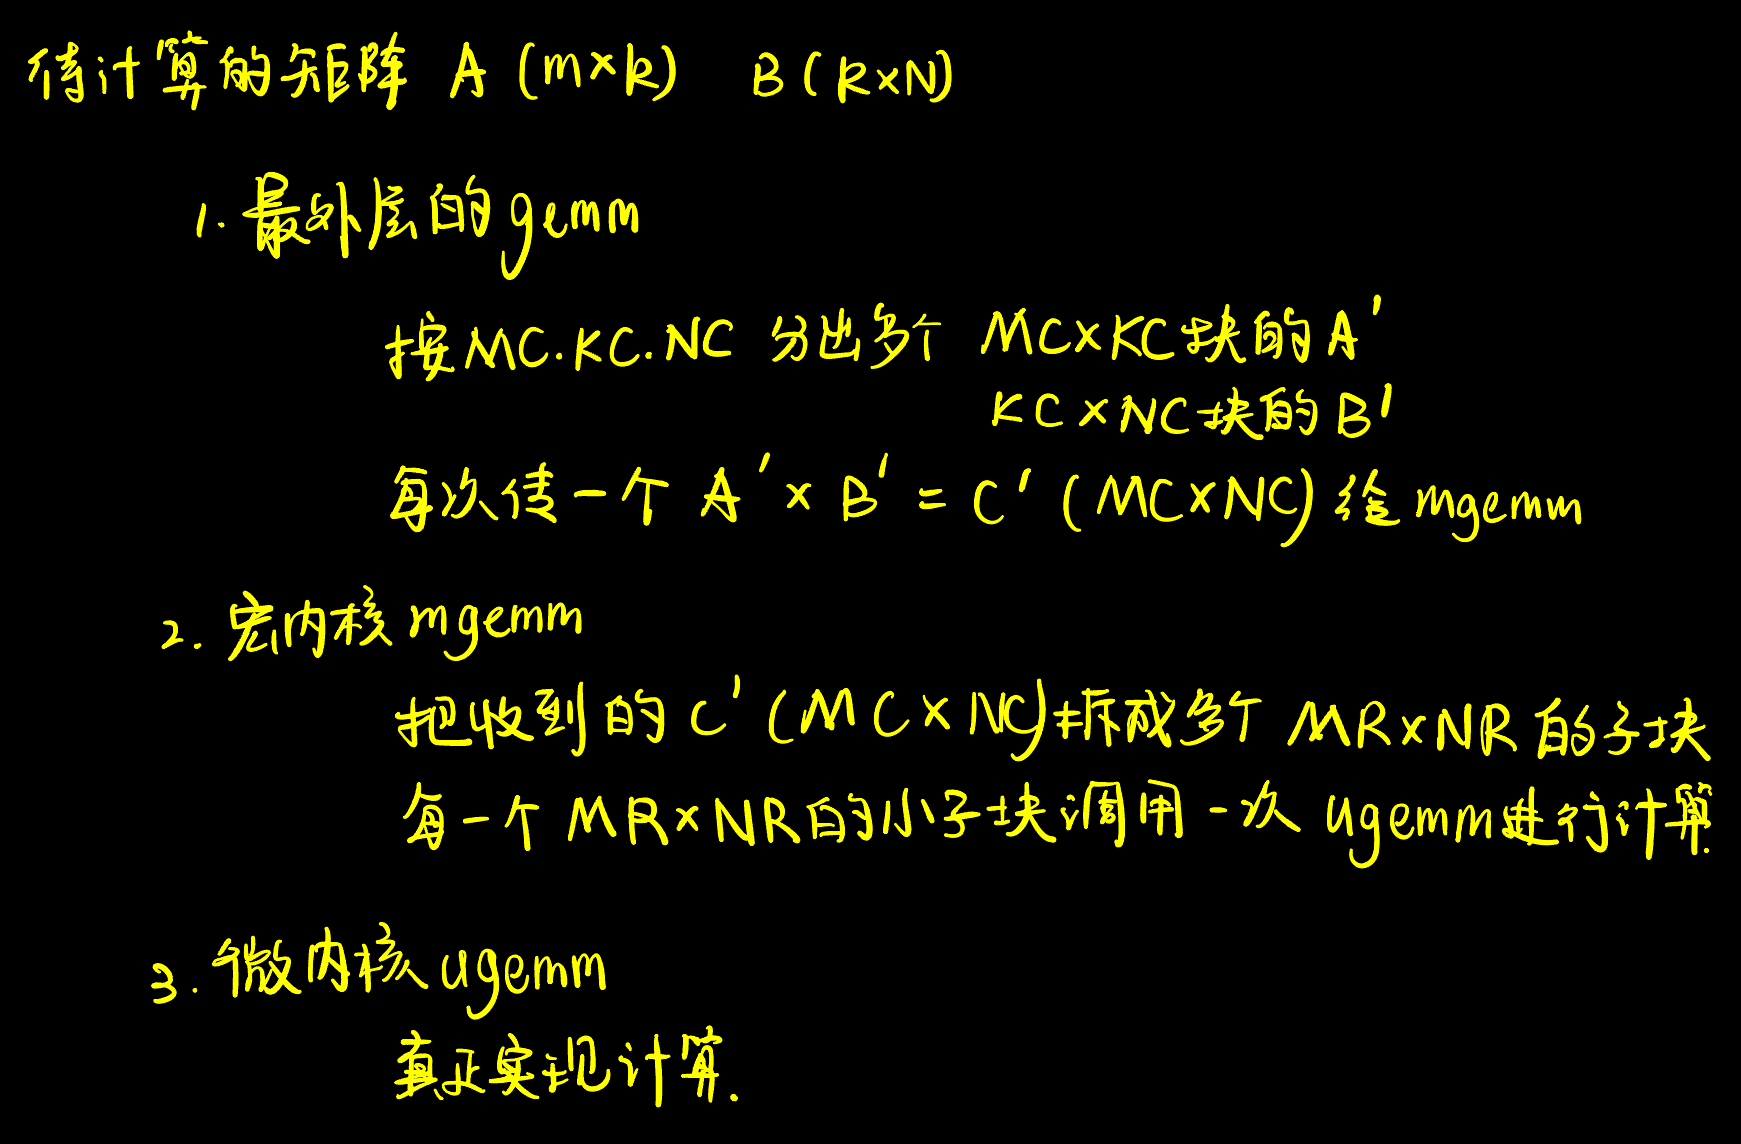 待计算的矩阵 A (m×k) B (k×N)
1. 最外层的gemm
按MC.KC.NC 分出多个 MC×KC块的A'
KC×NC块的B'
每次传一个 A'×B' = C' (MC×NC) 给 mgemm
2. 宏内核 mgemm
把收到的 C' (MC×NC)拆成多个 MR×NR 的子块
每一个 MR×NR的小子块调用一次 ugemm进行计算.
3. 微内核 ugemm
真正实现计算.